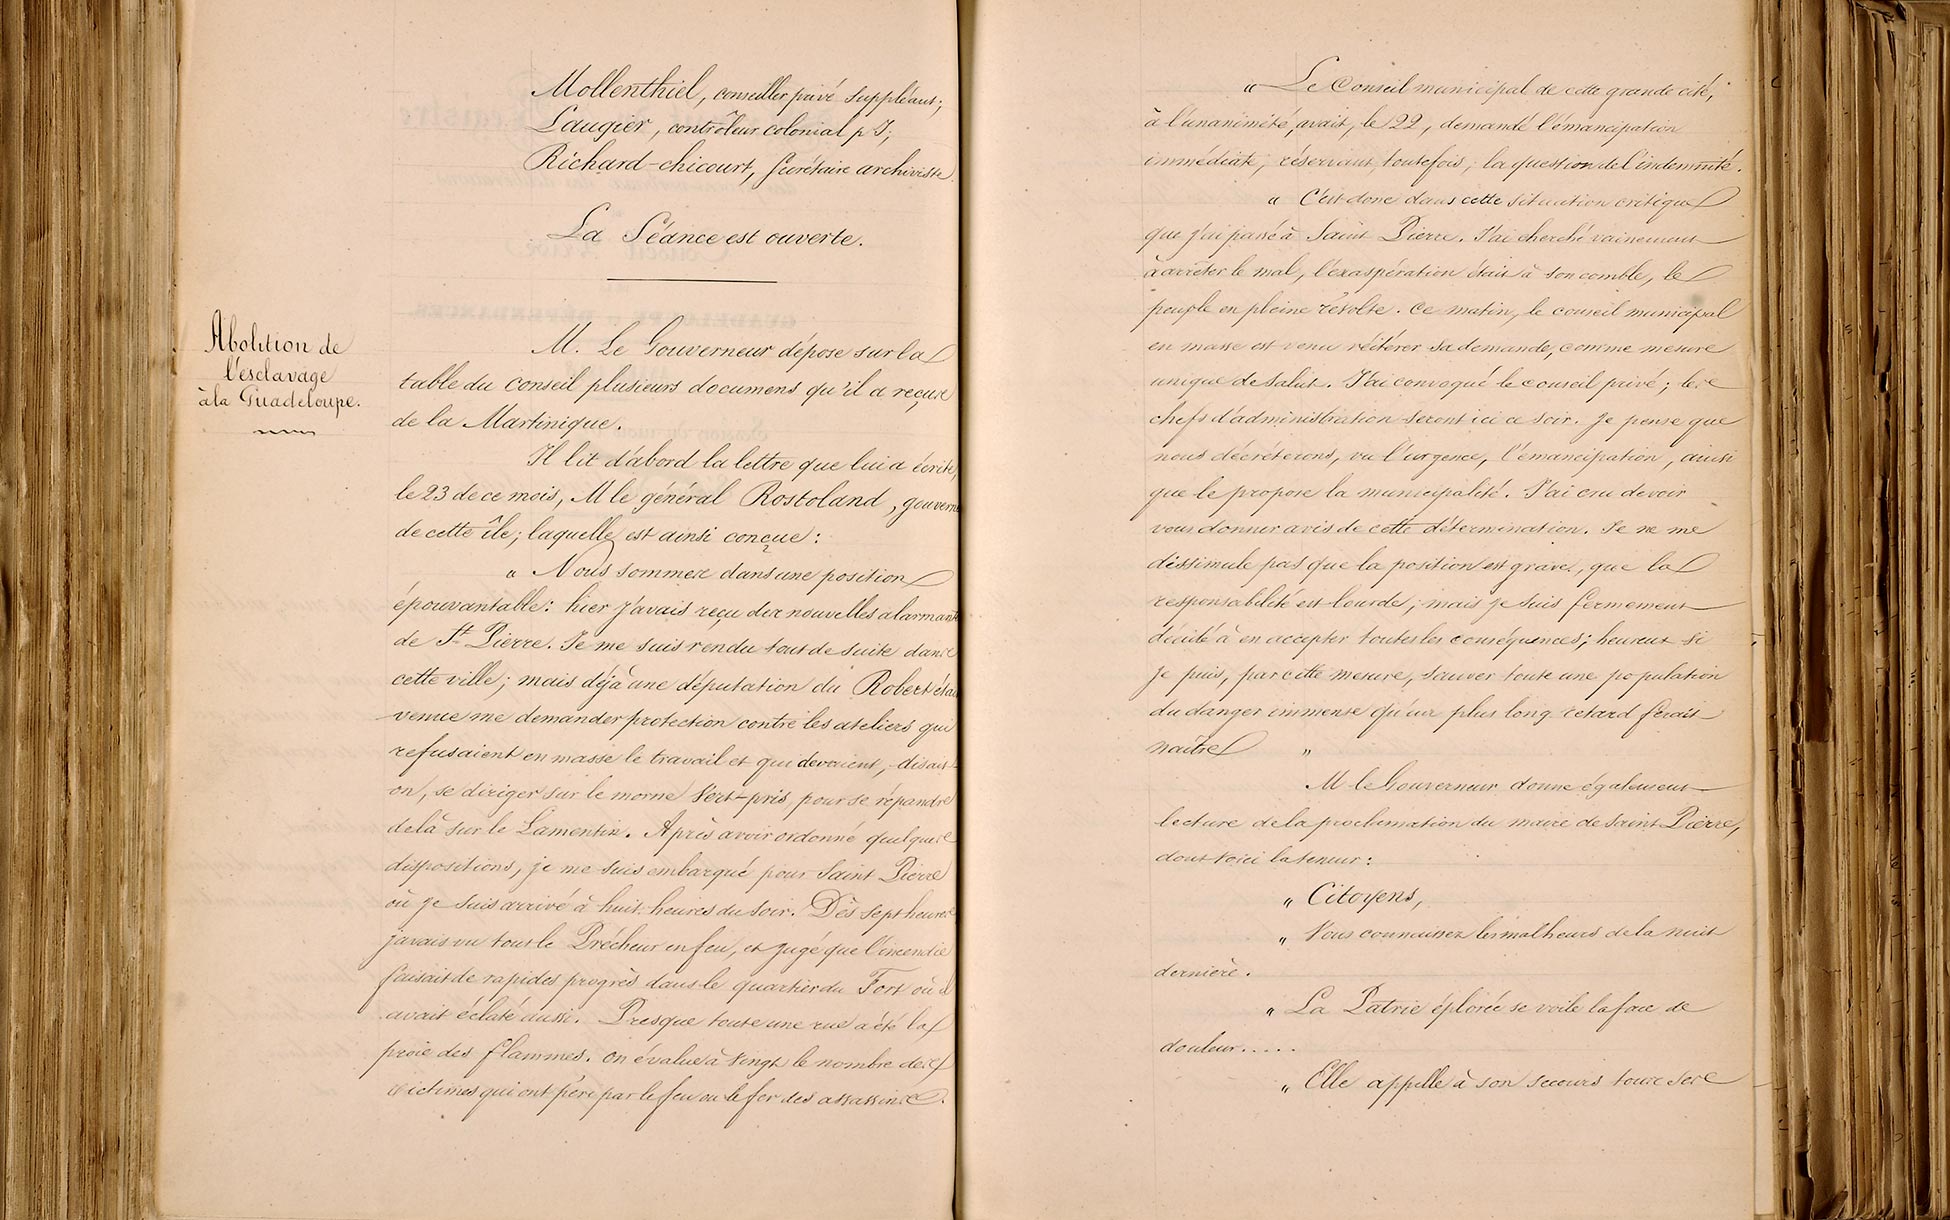 Mollenthiel, conseiller privé suppléant;
Laugier, contrôleur colonial p I;
Richard-chicourt, Secrétaire archiviste.
La Séance est ouverte.
Abolition de
l'esclavage
à la Guadeloupe.
M. Le Gouverneur dépose sur la
table du conseil plusieurs documens qu'il a reçus
de la Martinique.
Il lit d'abord la lettre que lui a écrite,
le 23 de ce mois, M le général Rostoland, gouvern
de cette île; laquelle est ainsi conçue:
" Nous sommes dans une position
épouvantable: hier j'avais reçu des nouvelles alarmante
de St Pierre. Je me suis rendu tout de suite dans
cette ville; mais déjà une députation du Robert étai
venue me demander protection contre les ateliers qui
refusaient en masse le travail et qui devaient, disait-
on, se diriger sur le morne Vert-pris, pour se répandre
de là sur le Lamentin. Après avoir ordonné quelques
dispositions, je me suis embarqué pour Saint Pierre
où je suis arrivé à huit heures du soir. Dès sept heures
j'avais vu tous le Prêcheur en feu, et jugé que l'incendie
faisait de rapides progrès dans le quartier du Fort où il
avait éclaté aussi. Presque toute une rue a été la
proie des flammes. On évalue à vingt le nombre des
victimes qui ont péri par le feu ou le fer des assassins.
" Le Conseil municipal de cette grande cité,
à l'unanimité, avait, le 22, demandé l'émancipation
immédiate, réservant, toutefois, la question de l'indemnité.
" C'est donc dans cette situation critique
que j'ai passé à Saint Pierre. J'ai cherché vainement
à arrêter le mal, l'exaspération était à son comble, le
peuple en pleine révolte. Ce matin, le conseil municipal
en masse est venu réitérer sa demande, comme mesure
unique de salut. J'ai convoqué le conseil privé; les
chefs d'administration seront ici ce soir. Je pense que
nous décréterons, vu l'urgence, l'émancipation, ainsi
que le propose la municipalité. J'ai cru devoir
vous donner avis de cette détermination. Je ne me
dissimule pas que la position est grave, que la
responsabilité est lourde; mais je suis fermement
décidé à en accepter toutes les conséquences; heureux si
je puis, par cette mesure, sauver toute une population
du danger immense qu'un plus long retard ferait
naître "
M le Gouverneur donne également
lecture de la proclamation du maire de Saint Pierre,
dont voici la teneur:
" Citoyens,
" Vous connaissez les malheurs de la nuit
dernière.
" La Patrie éplorée se voile la face de
douleur.....
" Elle appelle à son secours tous ses